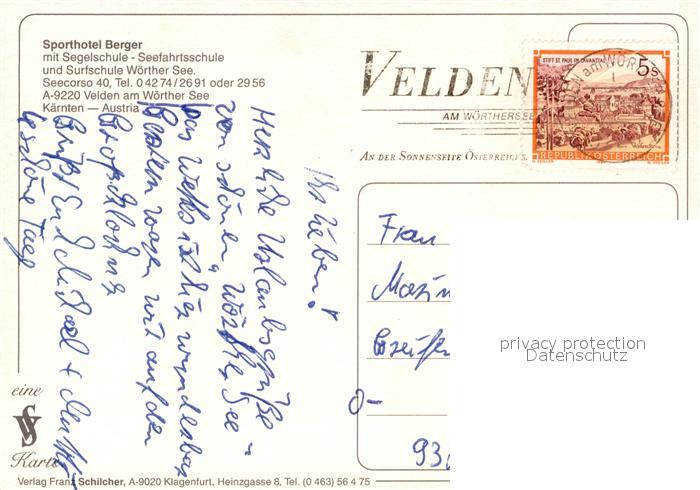 Sporthotel Berger
mit Segelschule - Seefahrtsschule
und Surfschule Wörther See.
Seecorso 40, Tel. 0 42 74 / 26 91 oder 29 56
A-9220 Velden am Wörther See
Kärnten — Austria
VELDEN
AM WÖRTHERSEE
AN DER SONNENSEITE ÖSTERREICHS
STIFT ST. PAUL IM LAVANTTAL
5 S
REPUBLIK ÖSTERREICH
Ihr Lieben!
Herzliche Urlaubsgrüße
vom schönen "Wörther See".
Das Wetter ist hier wunderbar
wir auf den
Großglockner
Grüßt Euch Michael +
schöne Tage
Frau
93
privacy protection
Datenschutz
eine
Karte
Verlag Franz Schilcher, A-9020 Klagenfurt, Heinzgasse 8, Tel. (0 463) 56 4 75